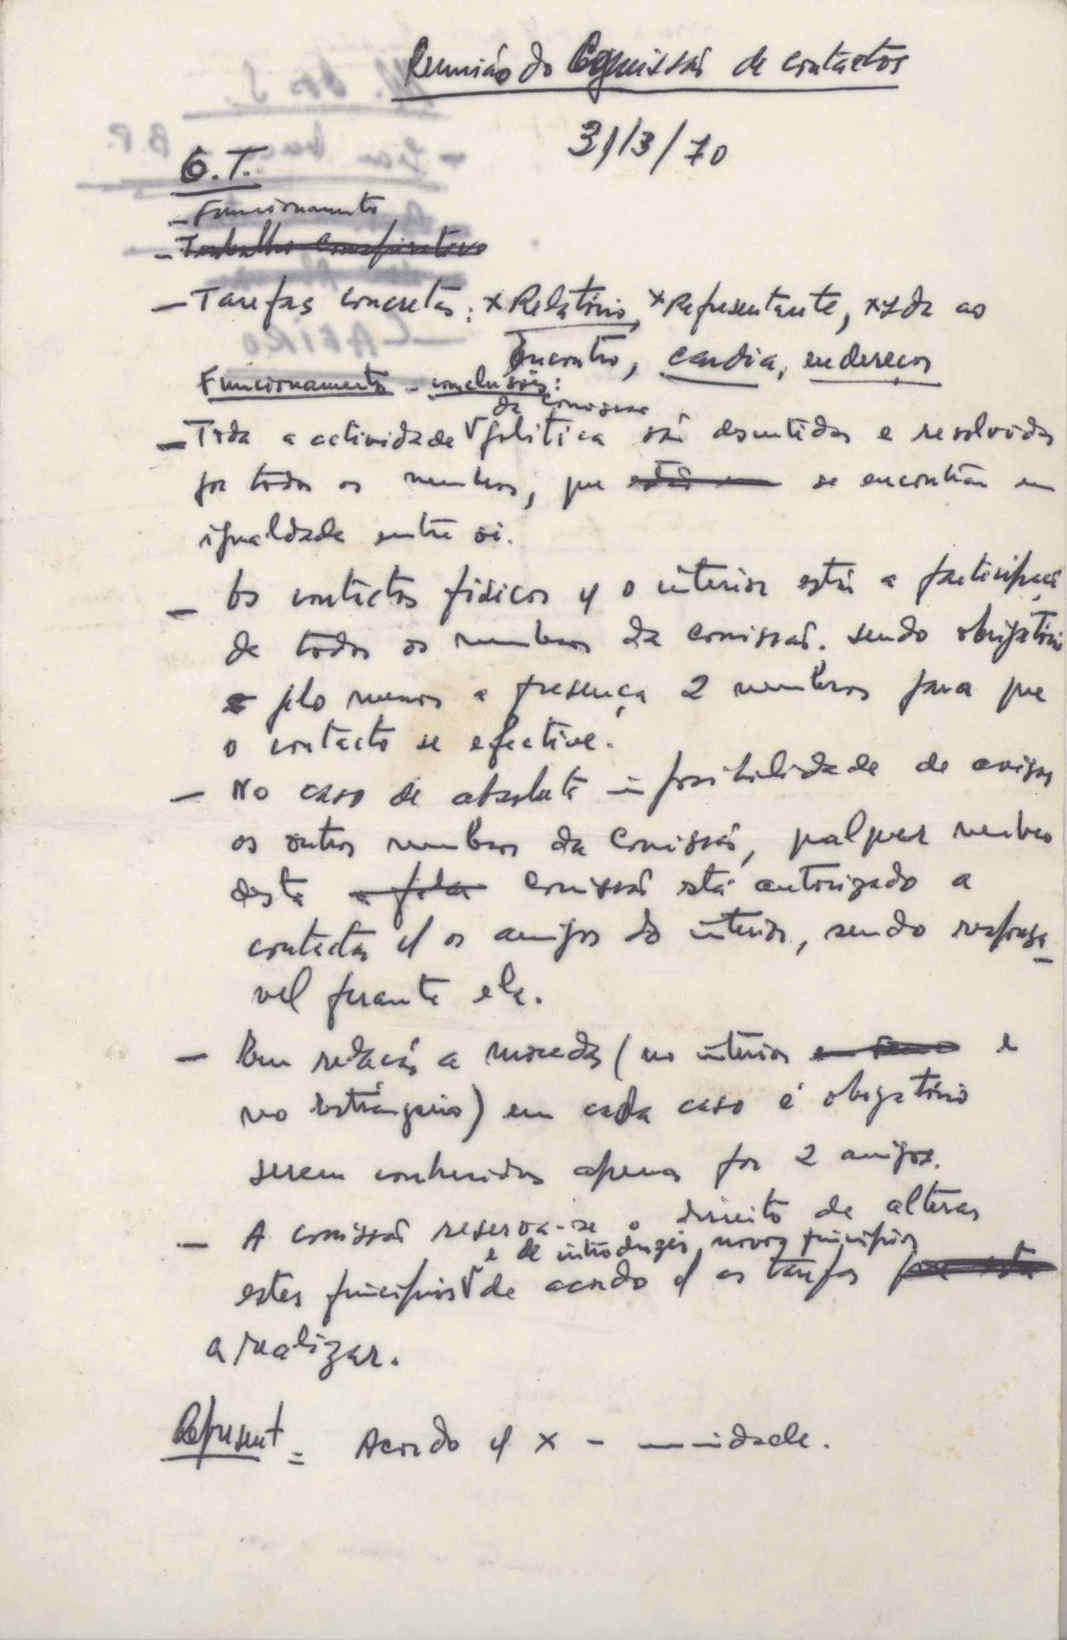 Reunião da Comissão de contactos
31/3/70
O.T.
- Funcionamento
- Trabalho Conspirativo
- Tarefas concretas: x Relatório, x Representante, x Ida ao
Encontro, candia, endereços
Funcionamento - conclusões:
da comissão
- Toda a actividade política são discutidas e resolvidas
por todos os membros, que se encontrão em
igualdade entre si.
- Os contactos físicos c/ o interior está a participaçã
de todos os membros da comissão. sendo obrigatóri
plo menos a presença 2 membros para que
o contacto se efective.
- No caso de absoluta impossibilidade de avisar
os outros membros da Comissão, qualquer membro
desta comissão está autorizado a
contactar c/ os amigos do interior, sendo responsa-
vel perante ela.
- Em relação a moradas (no interior e
no estrangeiro) em cada caso é obrigatório
serem conhecidas apenas por 2 amigos.
- A comissão reserva-se o direito de alterar
e de introduzir novos princípios
estes princípios de acordo c/ as tarefas
a realizar.
Represent = Acordo c/ x - unidade.